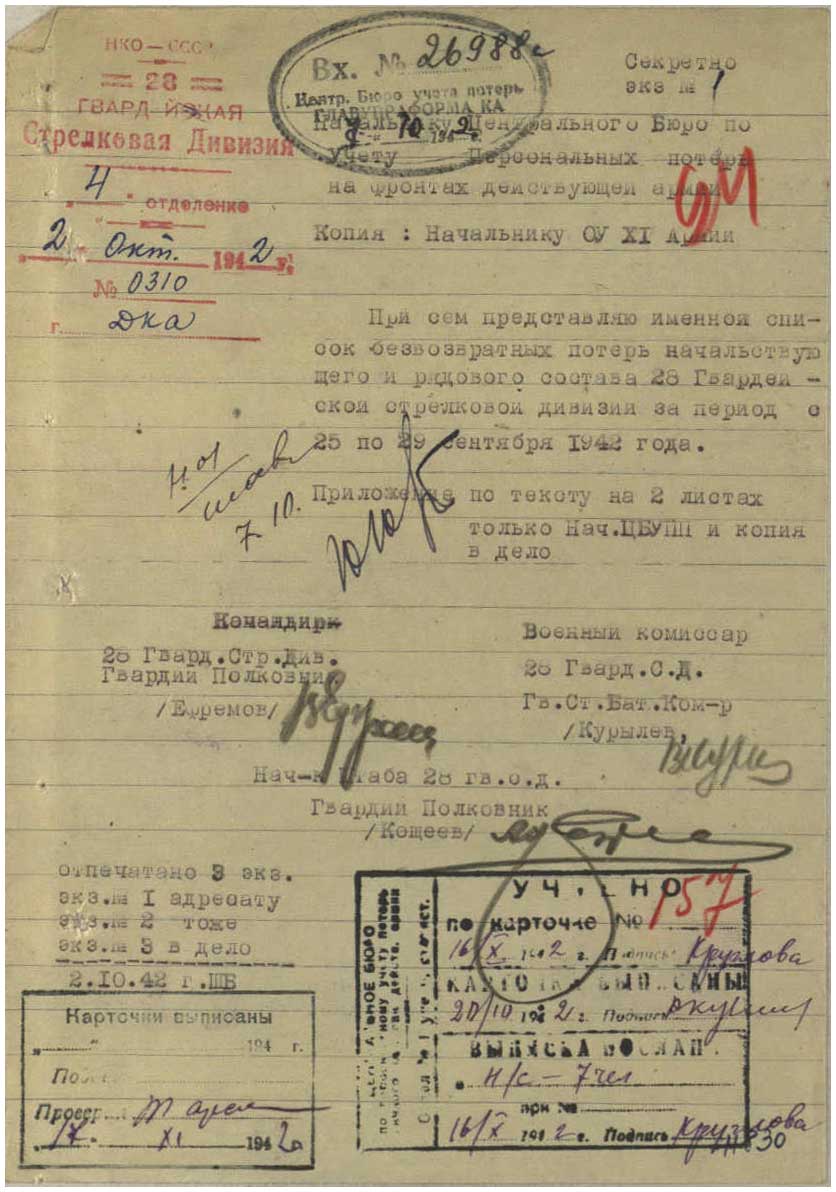 НКО — СССР
28
ГВАРДЕЙСКАЯ
Стрелковая Дивизия
4
отделение
2 Окт. 1942 г.
№ 0310
г. ДКА
Вх. № 26988с
Центр. Бюро учета потерь
ГЛАВУПРАФОРМА КА
7 10 1942 г.
Секретно
экз № 1
Начальнику Центрального Бюро по
учету Персональных потерь
на фронтах действующей армии
Копия : Начальнику ОУ XI Армии
При сем представляю именной спи-
сок безвозвратных потерь начальствую
щего и рядового состава 28 Гвардей -
ской стрелковой дивизии за период с
25 по 29 сентября 1942 года.
7 10.
Приложение по тексту на 2 листах
только Нач.ЦБУПП и копия
в дело
Командирк
28 Гвард.Стр.Див.
Гвардии Полковник
/Ефремов/
Военный комиссар
28 Гвард.С.Д.
Гв.Ст.Бат.Ком-р
/Курылев,
Нач-к Штаба 28 гв.с.д.
Гвардии Полковник
/Кощеев/
отпечатано 3 экз.
экз.№ 1 адресату
экз.№ 2 тоже
экз.№ 3 в дело
2.10.42 г.ШБ
Карточки выписаны
194 г.
Провер
17 XI 1942 г.
УЧТЕНО
по карточке № 157
16/X 1942 г. Подпись Круглова
КАРТОЧКА ВЫПИСАНЫ
20/10 1942 г. Подпись
ВЫПИСКА ПОСЛАН
н/с — 7 чел
при №
16/X 1942 г. Подпись Круглова